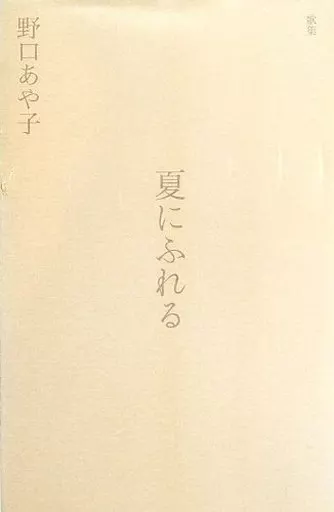 歌集
夏にふれる
野口あや子